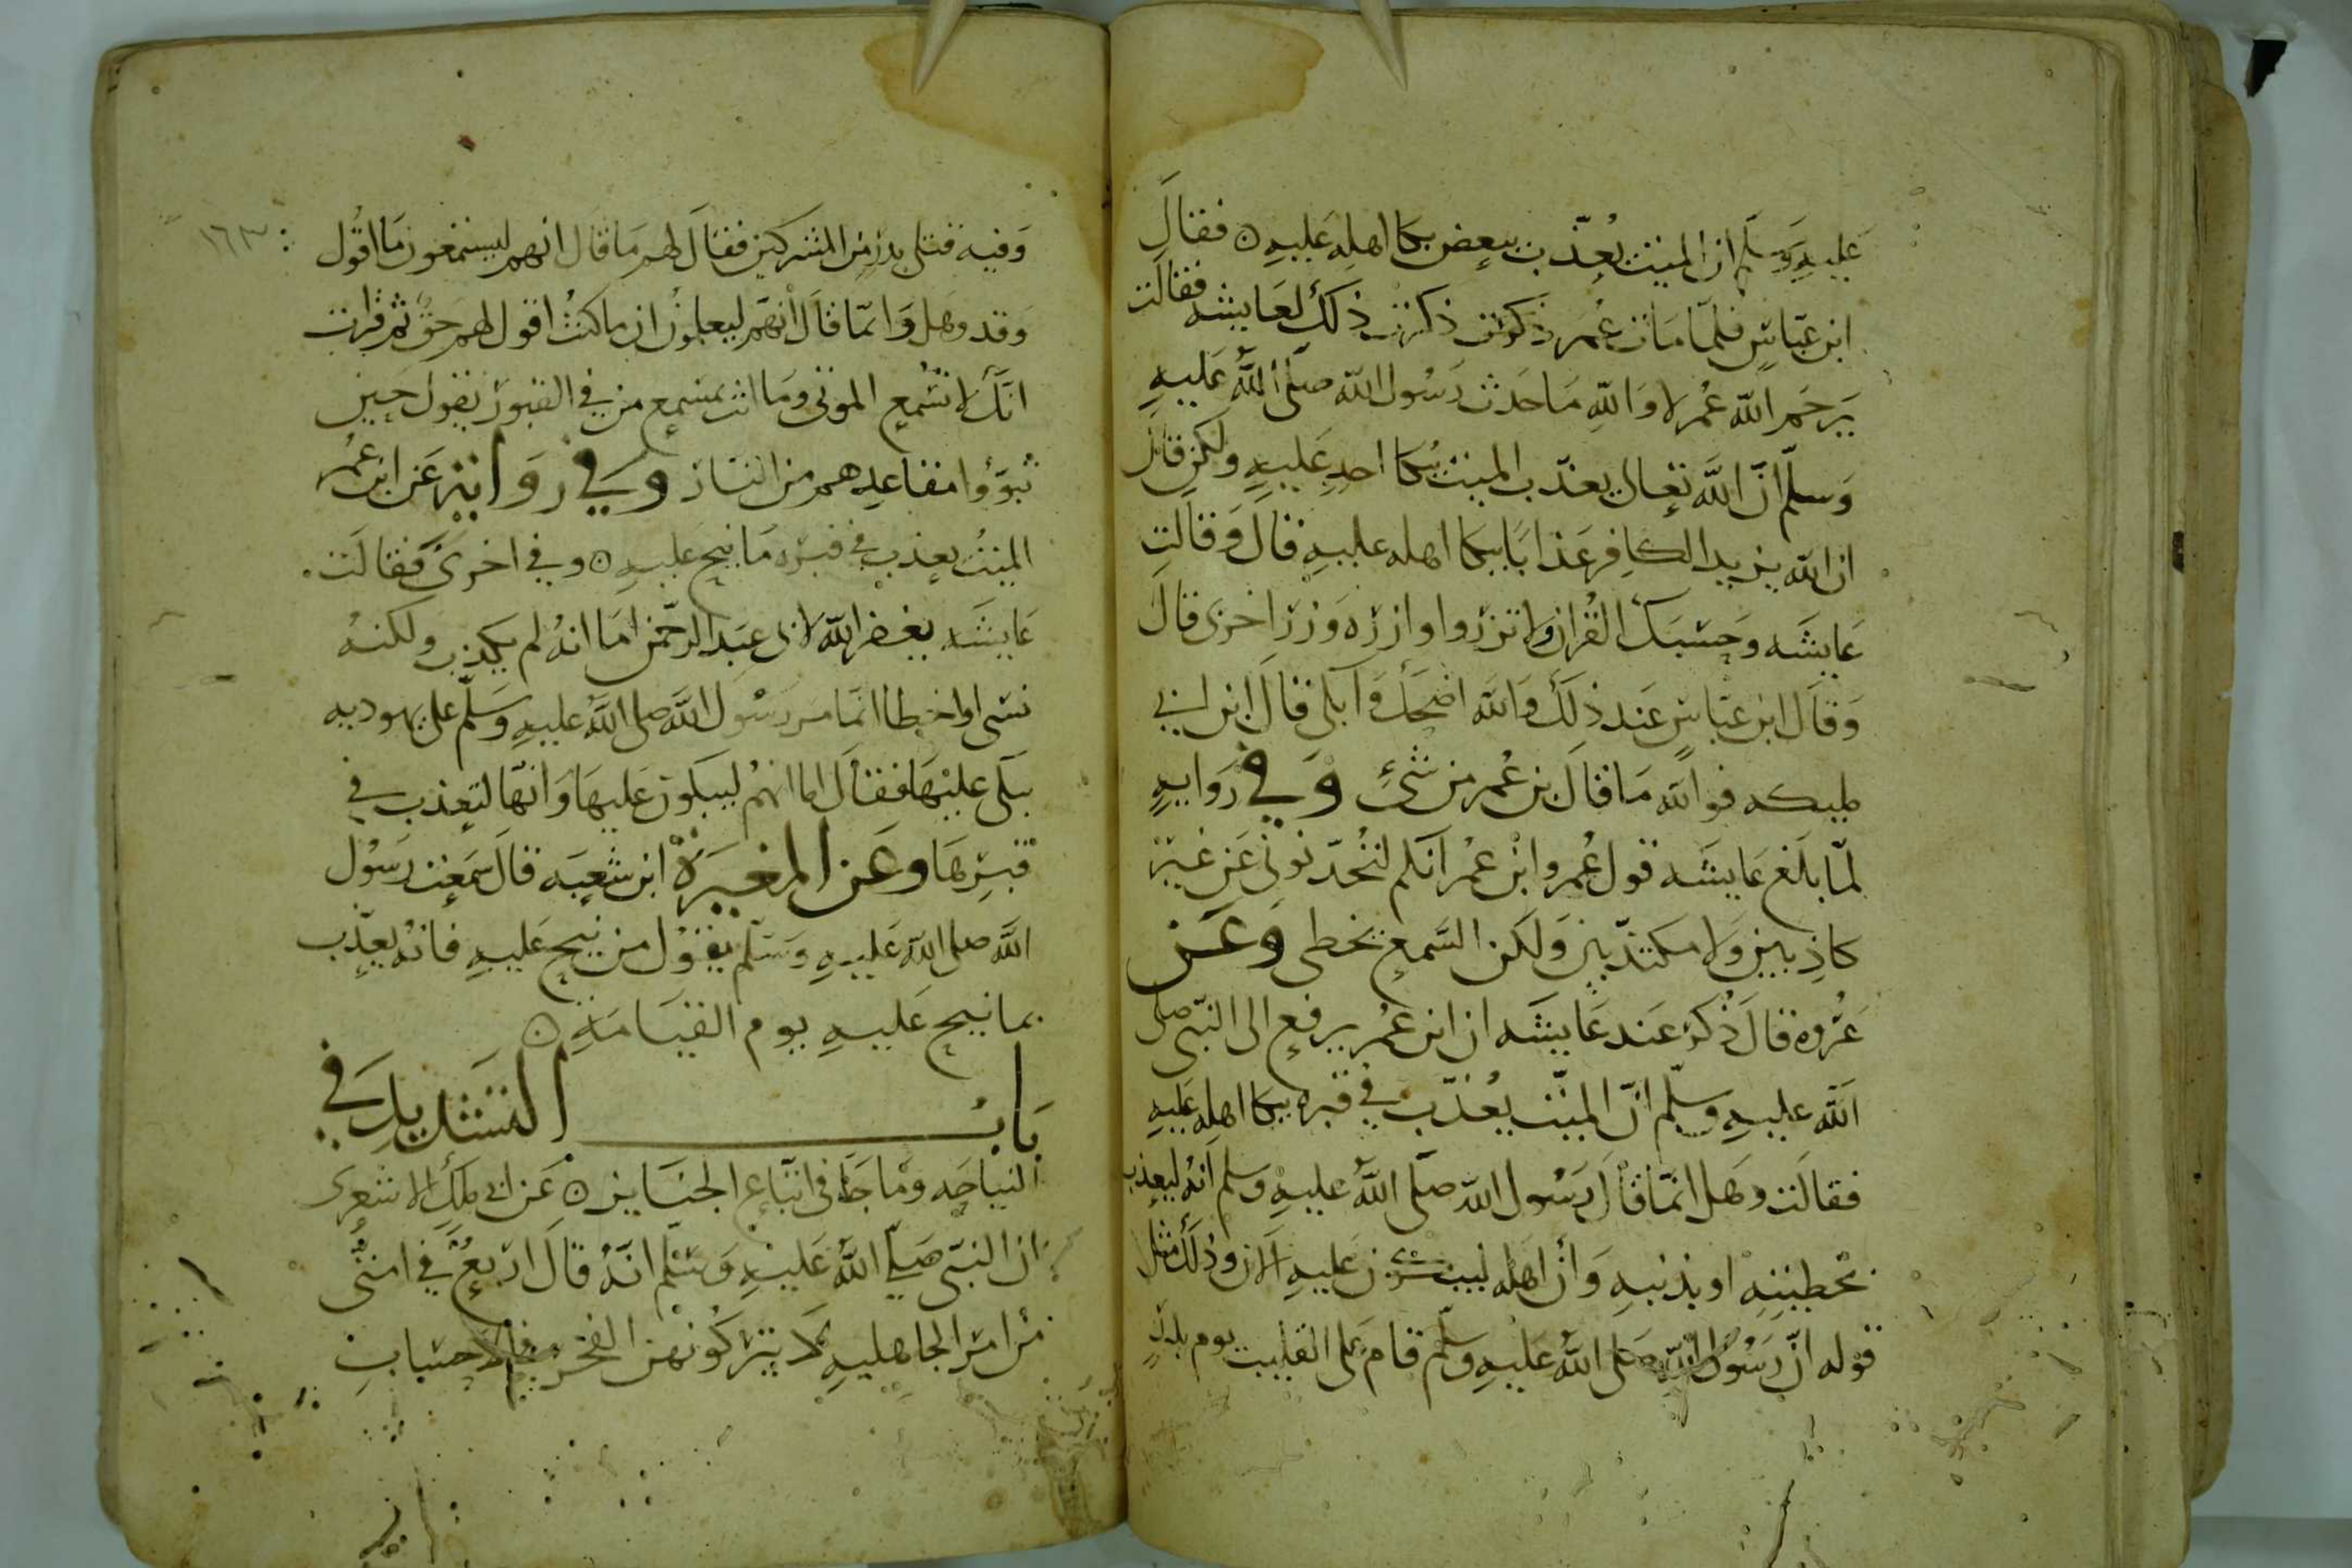 عليه وسلم ان الميت يعذب ببعض بكا اهله عليه ه فقال
ابن عباس فلما مات عمر ذكرت ذلك لعايشه فقالت
يرحم الله عمر لا والله ما حدث رسول الله صلى الله عليه
وسلم ان الله تعالى يعذب الميت ببكا احد عليه ولكن قال
ان الله يزيد الكافر عذابا ببكا اهله عليه قال وقالت
عايشه وحسبك القران ولا تزروا وازره وزر اخرى قال
وقال ابن عباس عند ذلك والله اضحك وابكى قال ابن ابي
مليكه فوالله ما قال بن عمر من شئ وفي روايه
لما بلغ عايشه قول عمر وابن عمر انكم لتحدثوني عن غير
كاذبين ولا مكذبين ولكن السمع يخطى وعن
عروه قال ذكر عند عايشه ان ابن عمر يرفع الى النبي صلى
الله عليه وسلم ان الميت يعذب في قبره ببكا اهله عليه
فقالت وهل انما قال رسول الله صلى الله عليه وسلم انه ليعذب
بخطيئته او بذنبه وان اهله ليبكون عليه الان وذلك مثل
قوله ان رسول الله صلى الله عليه وسلم قام على القليب يوم بدر
وفيه قتلى بدر من المشركين فقال لهم ما قال انهم ليسمعون ما اقول
١٦٣
وقد وهل وانما قال انهم ليعلمون ان ما كنت اقول لهم حق ثم قرات
انك لا تسمع الموتى وما انت بمسمع من في القبور يقول حين
تبوؤا مقاعدهم من النار وفي رواية عن ابن عمر
الميت يعذب في قبره ما نيح عليه ه وفي اخرى فقالت
عايشه يغفر الله لابى عبد الرحمن اما انه لم يكذب ولكنه
نسى او اخطا انما مر رسول الله صلى الله عليه وسلم على يهوديه
يبكى عليها فقال اما انهم ليبكون عليها وانها لتعذب في
قبرها وعن المغيرة ابن شعبه قال سمعت رسول
الله صلى الله عليه وسلم يقول من نيح عليه فانه يعذب
بما نيح عليه يوم القيامه ه
باب التشديد في
النياحه وما جا في اتباع الجنايز ه عن ابي ملك الاشعرى
ان النبي صلى الله عليه وسلم انه قال اربع في امتى
من امر الجاهليه لا يتركونهن الفخر الاحساب